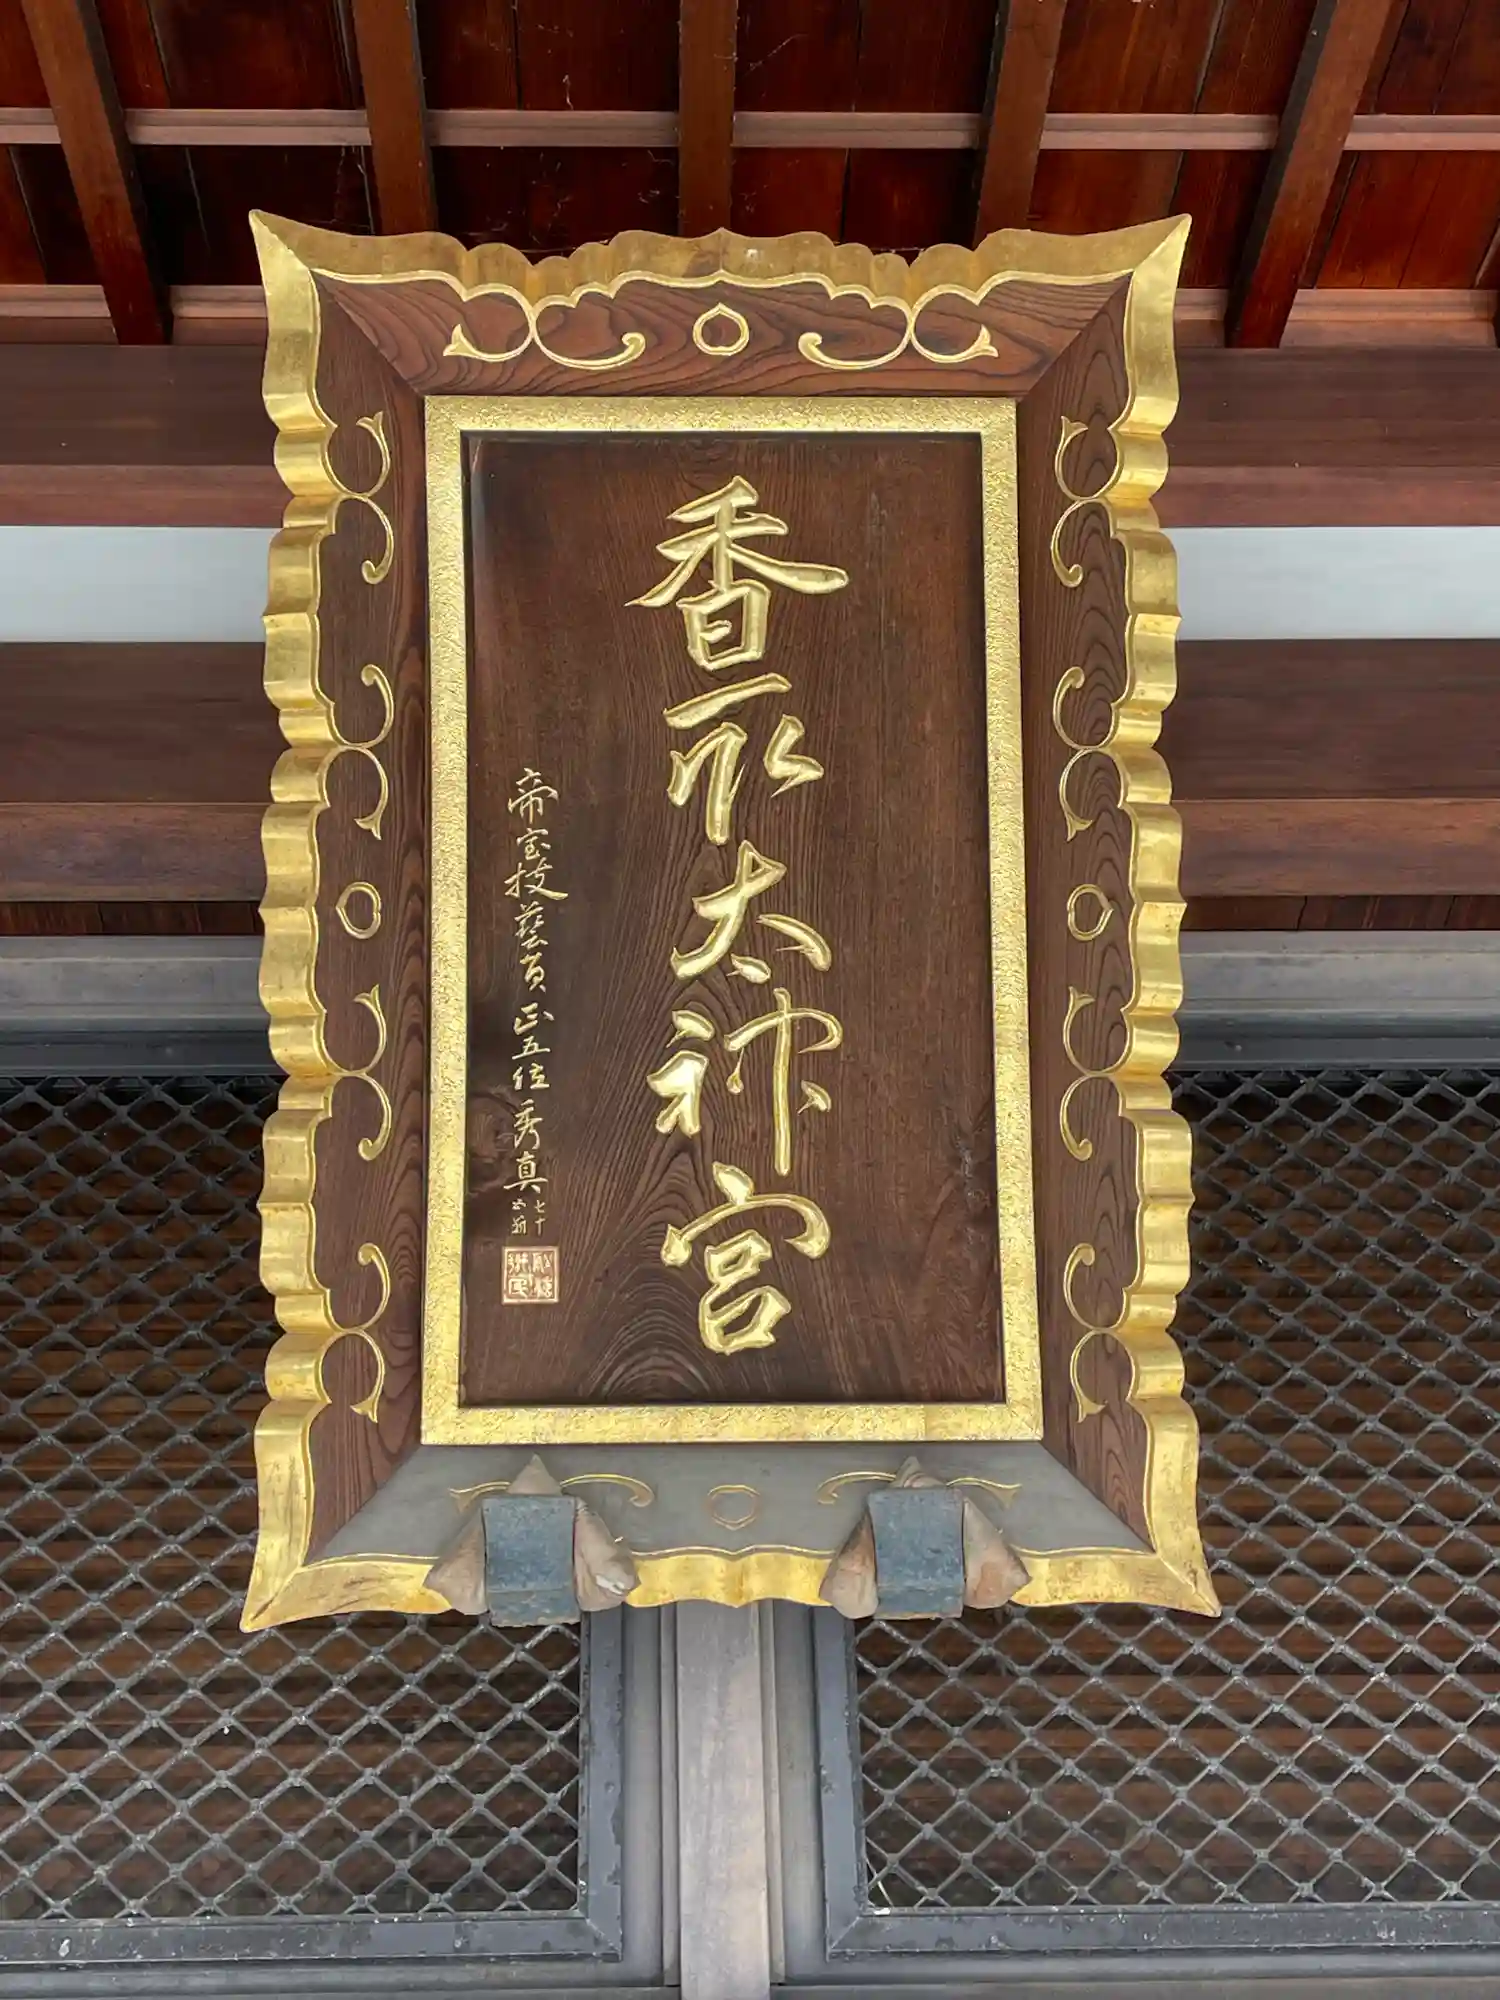 香取太神宮
帝室技藝員正五位秀真
七十